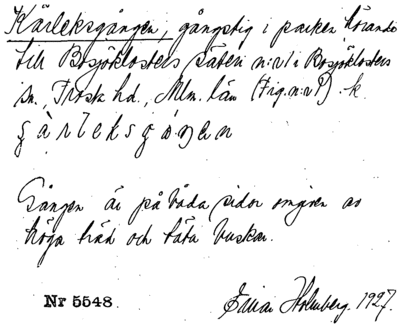 Kärleksgången, gångstig i parken hörande
till Bosjöklosters säteri n:r 1 i Bosjöklosters
sn., Frosta hd., Mlm. län (Fig. n:r 1). k.
Gången är på båda sidor omgiven av
höga träd och täta buskar.
Nr 5548.
Einar Holmberg. 1927.